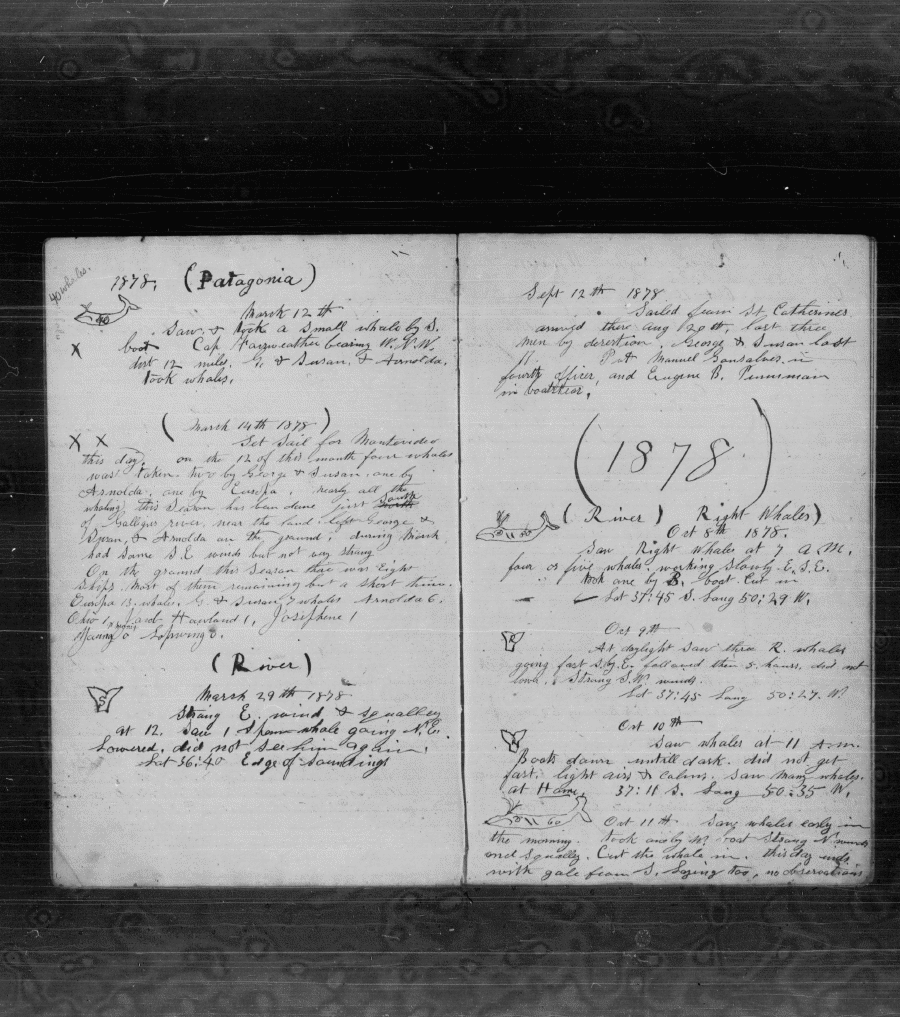 40 whales.
1878. (Patagonia)
40
March 12th
Saw & took a small whale by S.
X boat Cap Fayrweather bearing W.N.W
dist 12 miles. G. & Susan, & Arnolda.
took whales.
(March 14th 1878)
X X Set Sail for Montevideo
this day on the 12 of this month four whales
was taken. two by George & Susan. one by
Arnolda. one by Europa. nearly all the
whaling this Season has ben done just South North
of Galligus river, near the land. left George &
Susan, & Arnolda on the ground, during March
had some S.E winds but not any strong.
On the ground this Season there was Eight
Ships. Most of them remaining but a short time.
Europa 13. whales. G & Susan 7 whales Arnolda 6.
Ohio 1, Howland 1, Josiphene 1
0 Lapwing 0.
(River)
S
March 29th 1878
Strong E. wind & squalley
at 12. Saw 1 Sperm whale going N.E.
Lowered. did not see him again.
Lat 36:40 Edge of Soundings
Sept 12th 1878
Sailed from St Catherines
arrived there Aug 20th, lost three
men by desertion. George & Susan lost
11. Put Manuel Gonsalves in
fourth officer, and Eugene B. Pennman
in boatstear.
(1878.)
(River) Right Whales)
Oct 8th 1878.
Saw Right Whales at 7 A.M.
four or five whales. working slowly E.S.E.
took one by B. boat Cut in
Lat 37:45 S. Long 50:29 W.
Oct 9th
R
At daylight Saw three R. whales
going fast S.by.E. followed then 5 hours, did not
Lowe. Strong S.W. winds.
Lat 37:45 Long 50:27. W.
Oct 10th
Saw whales at 11 A.m.
Boats down untill dark. did not get
fast. light airs & calms. Saw many whales.
at Home. 37:11 S. Long 50:35 W.
60
Oct 11th Saw whales early in
the morning. took one by W. boat Strong N. winds
and Squally. Cut the whale in. this day ends
with gale from S. Laying too, no observations